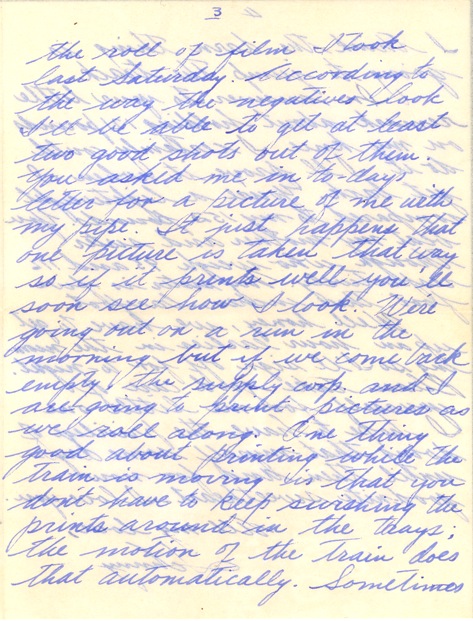 3
the roll of film I took
last Saturday. According to
the way the negatives look
I'll be able to get at least
two good shots out of them.
You asked me in to-days
letter for a picture of me with
my pipe. It just happens that
one picture is taken that way
so if it prints well you'll
soon see how I look. We're
going out on a run in the
morning but if we come back
empty the supply corp. and I
are going to print pictures as
we roll along. One thing
good about printing while the
train is moving is that you
dont have to keep swishing the
prints around in the trays;
the motion of the train does
that automatically. Sometimes